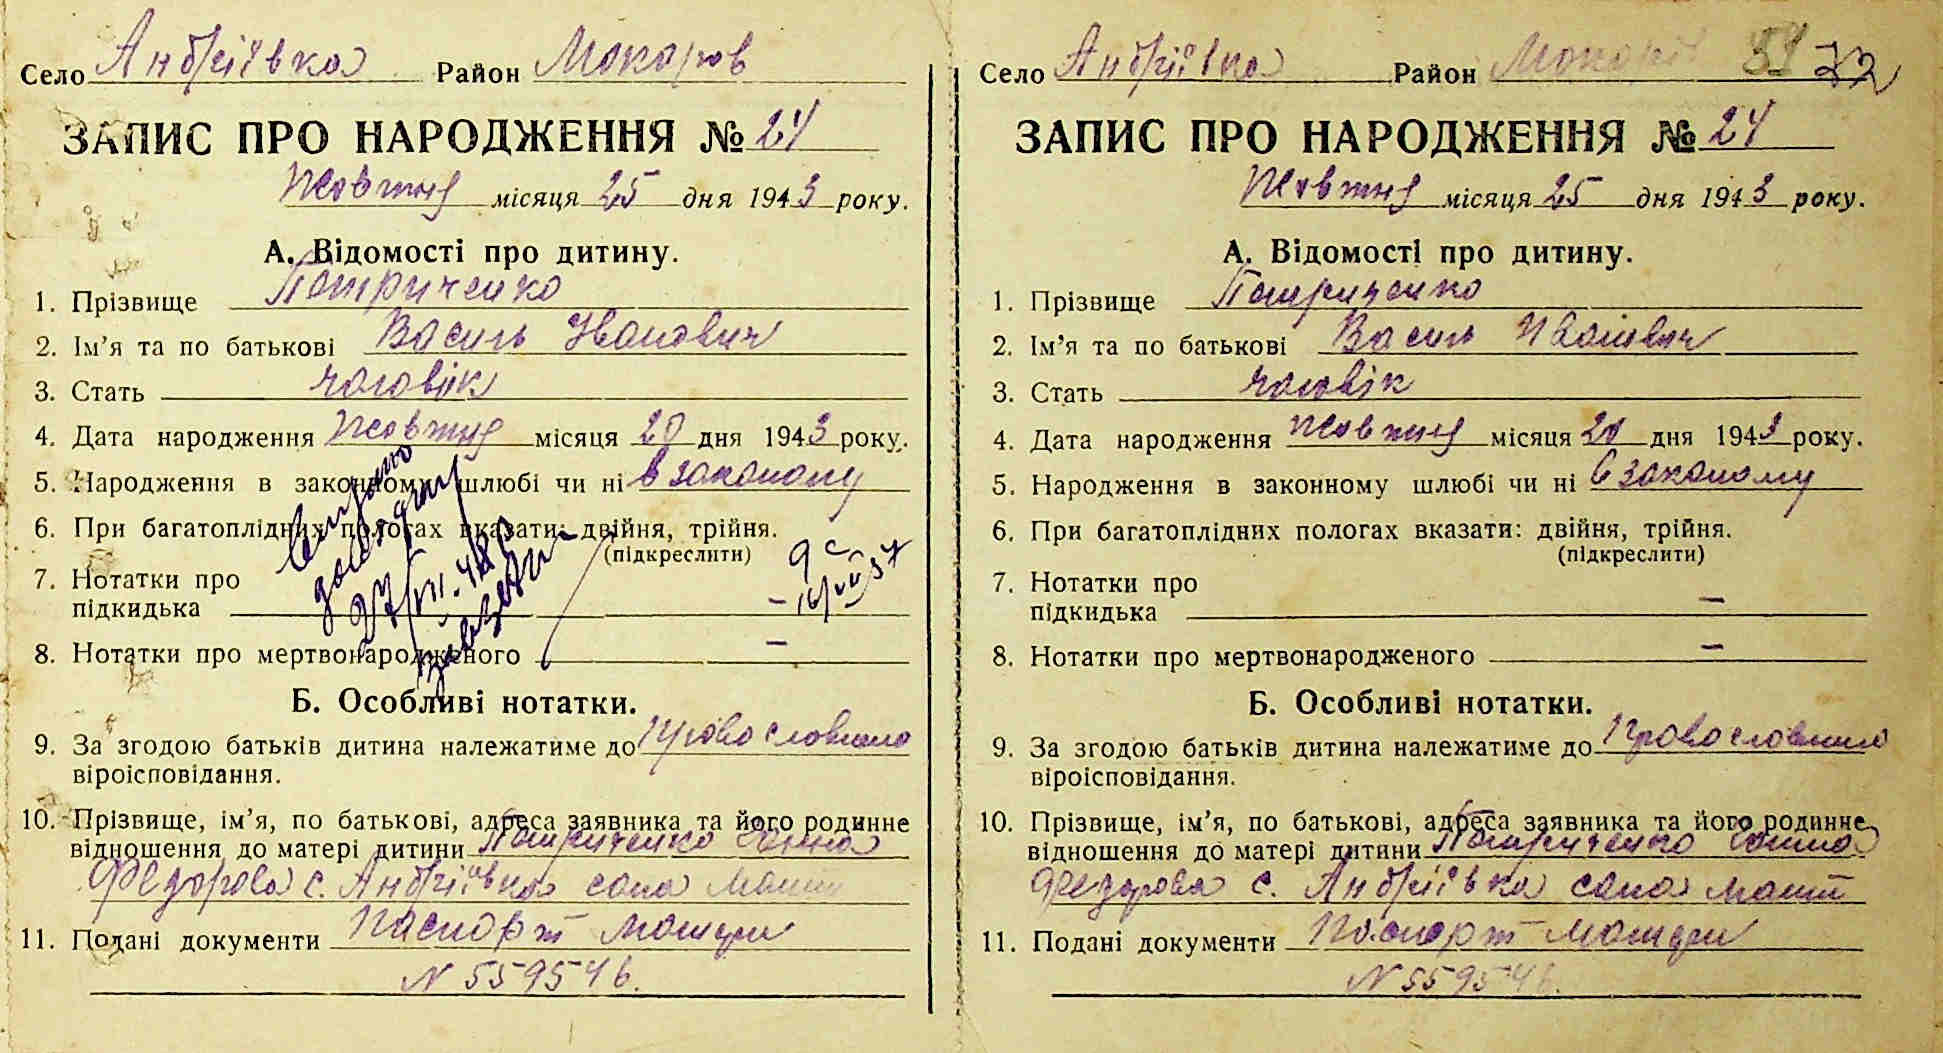 Село Андріївка Район Макаров
ЗАПИС ПРО НАРОДЖЕННЯ № 24
Жовтня місяця 25 дня 1943 року.
А. Відомості про дитину.
1. Прізвище Патриченко
2. Ім'я та по батькові Василь Иванович
3. Стать чоловік
4. Дата народження Жовтня місяця 20 дня 1943 року.
5. Народження в законному шлюбі чи ні в законому
6. При багатоплідних пологах вказати: двійня, трійня.
(підкреслити)
7. Нотатки про
підкидька –
8. Нотатки про мертвонародженого –
Б. Особливі нотатки.
9. За згодою батьків дитина належатиме до
віроісповідання.
10. Прізвище, ім'я, по батькові, адреса заявника та його родинне
відношення до матері дитини Патриченко Ганна
Федорова с. Андріївка сама мати
11. Подані документи Паспорт матери
N 559546.
Село Андріївка Район 72
ЗАПИС ПРО НАРОДЖЕННЯ № 24
Жовтня місяця 25 дня 1943 року.
А. Відомості про дитину.
1. Прізвище Патриченко
2. Ім'я та по батькові Василь Иванович
3. Стать чоловік
4. Дата народження Жовтня місяця 20 дня 1943 року.
5. Народження в законному шлюбі чи ні В законому
6. При багатоплідних пологах вказати: двійня, трійня.
(підкреслити)
7. Нотатки про
підкидька –
8. Нотатки про мертвонародженого –
Б. Особливі нотатки.
9. За згодою батьків дитина належатиме до
віроісповідання.
10. Прізвище, ім'я, по батькові, адреса заявника та його родинне
відношення до матері дитини Патриченко Ганна
Федорова с. Андріївка сама мати
11. Подані документи Паспорт матери
N 559546.